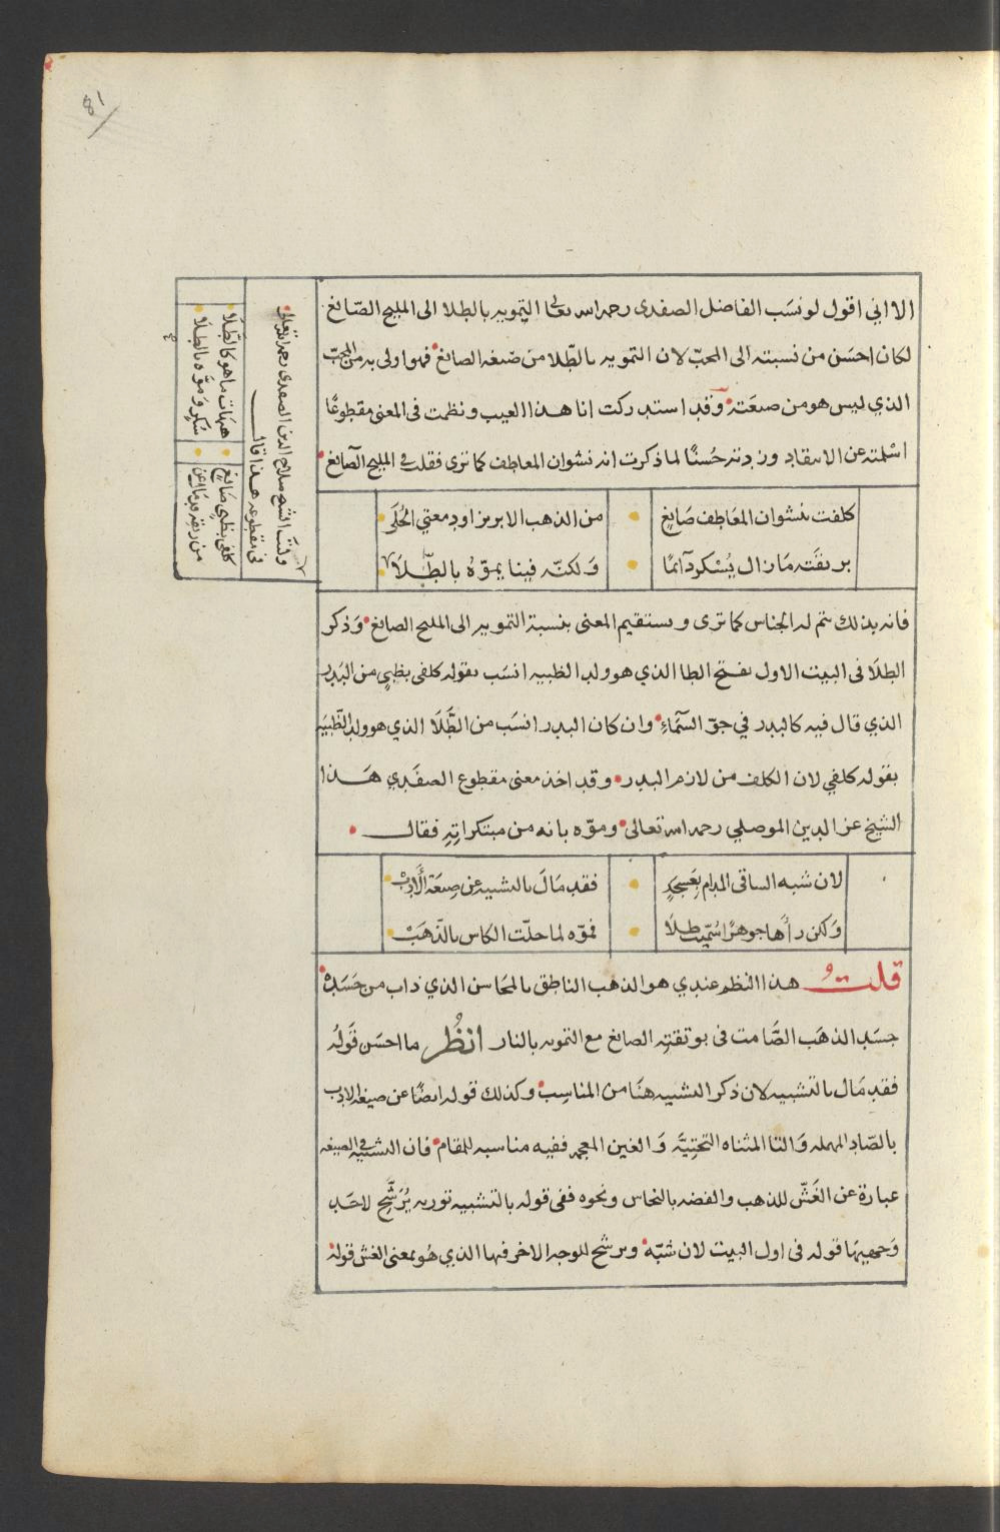 81
الا اني اقول لو نسَب الفاضل الصفدى رحمه الله تعالى التمويه بالطلا الى المليح الصّائغ
لكان احسَن من نسبته الى المحبّ لان التمويه بالطّلا من صَنعة الصائغ فهو اولى به من المحبّ
الذي ليس هو من صنعَته وقد استدركت انا هذا العيب ونظمت فى المعنى مقطوعًا
اسْلمته عن الانتقاد وزدته حُسنًا لما ذكرت انه نشوان المعاطف كما ترى فقلت في المليح الصّائغ
كلفت بنشوان المعَاطف صَايغٍ من الذهب الابريز اودِ معتي الحُلَى
بريقَته مَا زال يُسْكر دآئمًا وَلكنّه فينا يموّهُ بالطِّلَا
فانه بذلك يتم له الجناس كما ترى ويستقيم المعنى بنسبة التمويه الى المليح الصائغ وَذكر
الطلَا فى البيت الاول بفتح الطا الذي هو ولد الظبيه انسَب بقوله كلفى بظبيٍ من البَدر
الذي قال فيه كالبدر في جوّ السّمَاءِ وان كان البدر انسَب من الطَّلَا الذي هو ولد الظّبيَه
بقوله كلفي لان الكلف من لازم البدر وقد اخذ معنى مقطوع الصفَدي هَذا
الشيخ عز الدين الموصلي رحمه الله تعالى وموّه بانه من مبتكراتِهِ فقال
لان شبه الساقى المدام بِعَسجدٍ فقد مَالَ بالتشبيه عن صِبغَة الْأَدَبْ
وَلكن رأها جوهرًا سُمّيت طلًا فموّه لما حلّت الكاس بالذّهَبْ
قلتُ هذا النظم عندي هو الذهب الناطق بالمحَاسن الذي ذاب من حَسَدِهْ
جسَد الذهَب الصَّامت فى بوتقتِه الصائغ مع التمويه بالنار انظُر ما احسَن قَولهُ
فقد مَال بالتشبيه لان ذكر التشبيه هنَا من المناسِبْ وكذلك قوله ايضًا عن صيغة الادب
بالصّاد المهمله وَالتا المثناه التحتِيَّه وَالغين المعجمه ففيه مناسبه للمقام فان التشبيه في الصيغه
عبارة عن الغَشّ للذهب والفضه بالنحاس ونحوه ففى قوله بالتشبيه توريه يُرَشّح لاحَد
وَجهيهَا قوله فى اول البيت لان شبّه ويرشّح للوجه الاخر فيها الذي هُو بمعنى الغش قوله
وَلَبّ الشيخ صلاح الدين الصفدى رحمه الله تعالى
فى مقطوعه هذا قال
هيهَات ما هو كالطّلَا كلفى بظبيٍ صَايغٍ
سُكرٍ وَموّه بالطلَا من ريقه